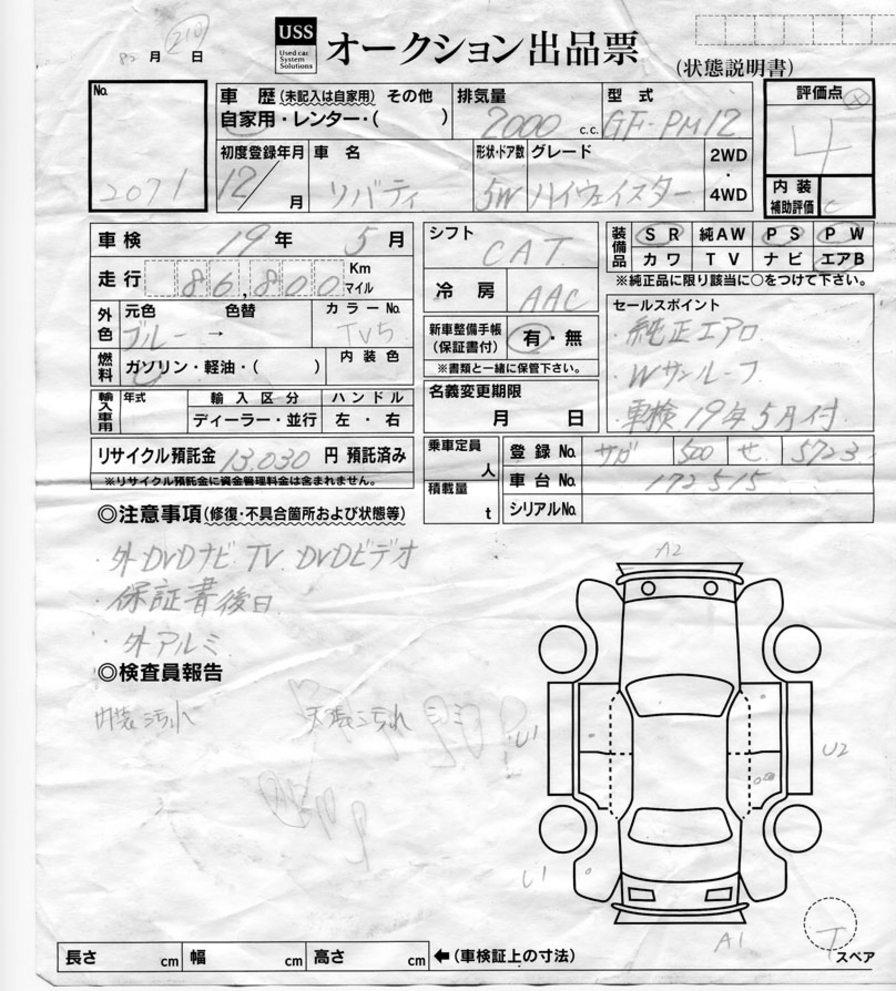 210
82 月 日
USS
Used car
System
Solutions
オークション出品票
(状態説明書)
No.
2071
車 歴 (未記入は自家用) その他
自家用・レンター・( )
排気量
2000 c.c.
型 式
GF-PM12
評価点
4
内 装
補助評価
C
初度登録年月
12/ 月
車 名
リバティ
形状・ドア数
5W
グレード
ハイウェイスター
2WD
・
4WD
車 検 19 年 5 月
走 行 86,800 Km
マイル
外色
元色 色替
ブルー →
カラーNo.
TV5
燃料
ガソリン・軽油・( )
内 装 色
シフト
CAT
冷 房
AAC
新車整備手帳
(保証書付)
有・無
※書類と一緒に保管下さい。
装備品
SR 純AW PS PW
カワ TV ナビ エアB
※純正品に限り該当に○をつけて下さい。
セールスポイント
・純正エアロ
・Wサンルーフ
・車検19年5月付
輸入車用
年式
輸 入 区 分
ディーラー・並行
ハ ン ド ル
左 ・ 右
名義変更期限
月 日
リサイクル預託金 13,030 円 預託済み
※リサイクル預託金に資金管理料金は含まれません。
乗車定員
人
積載量
t
登 録 No. サガ 500 せ 5723
車 台 No. 172515
シリアルNo.
◎注意事項(修復・不具合箇所および状態等)
・外DVDナビ TV DVDビデオ
・保証書後日
・外アルミ
◎検査員報告
内装汚れ 天張汚れ
A2
U1
U2
U1
A1
T
スペア
長さ cm 幅 cm 高さ cm ←(車検証上の寸法)